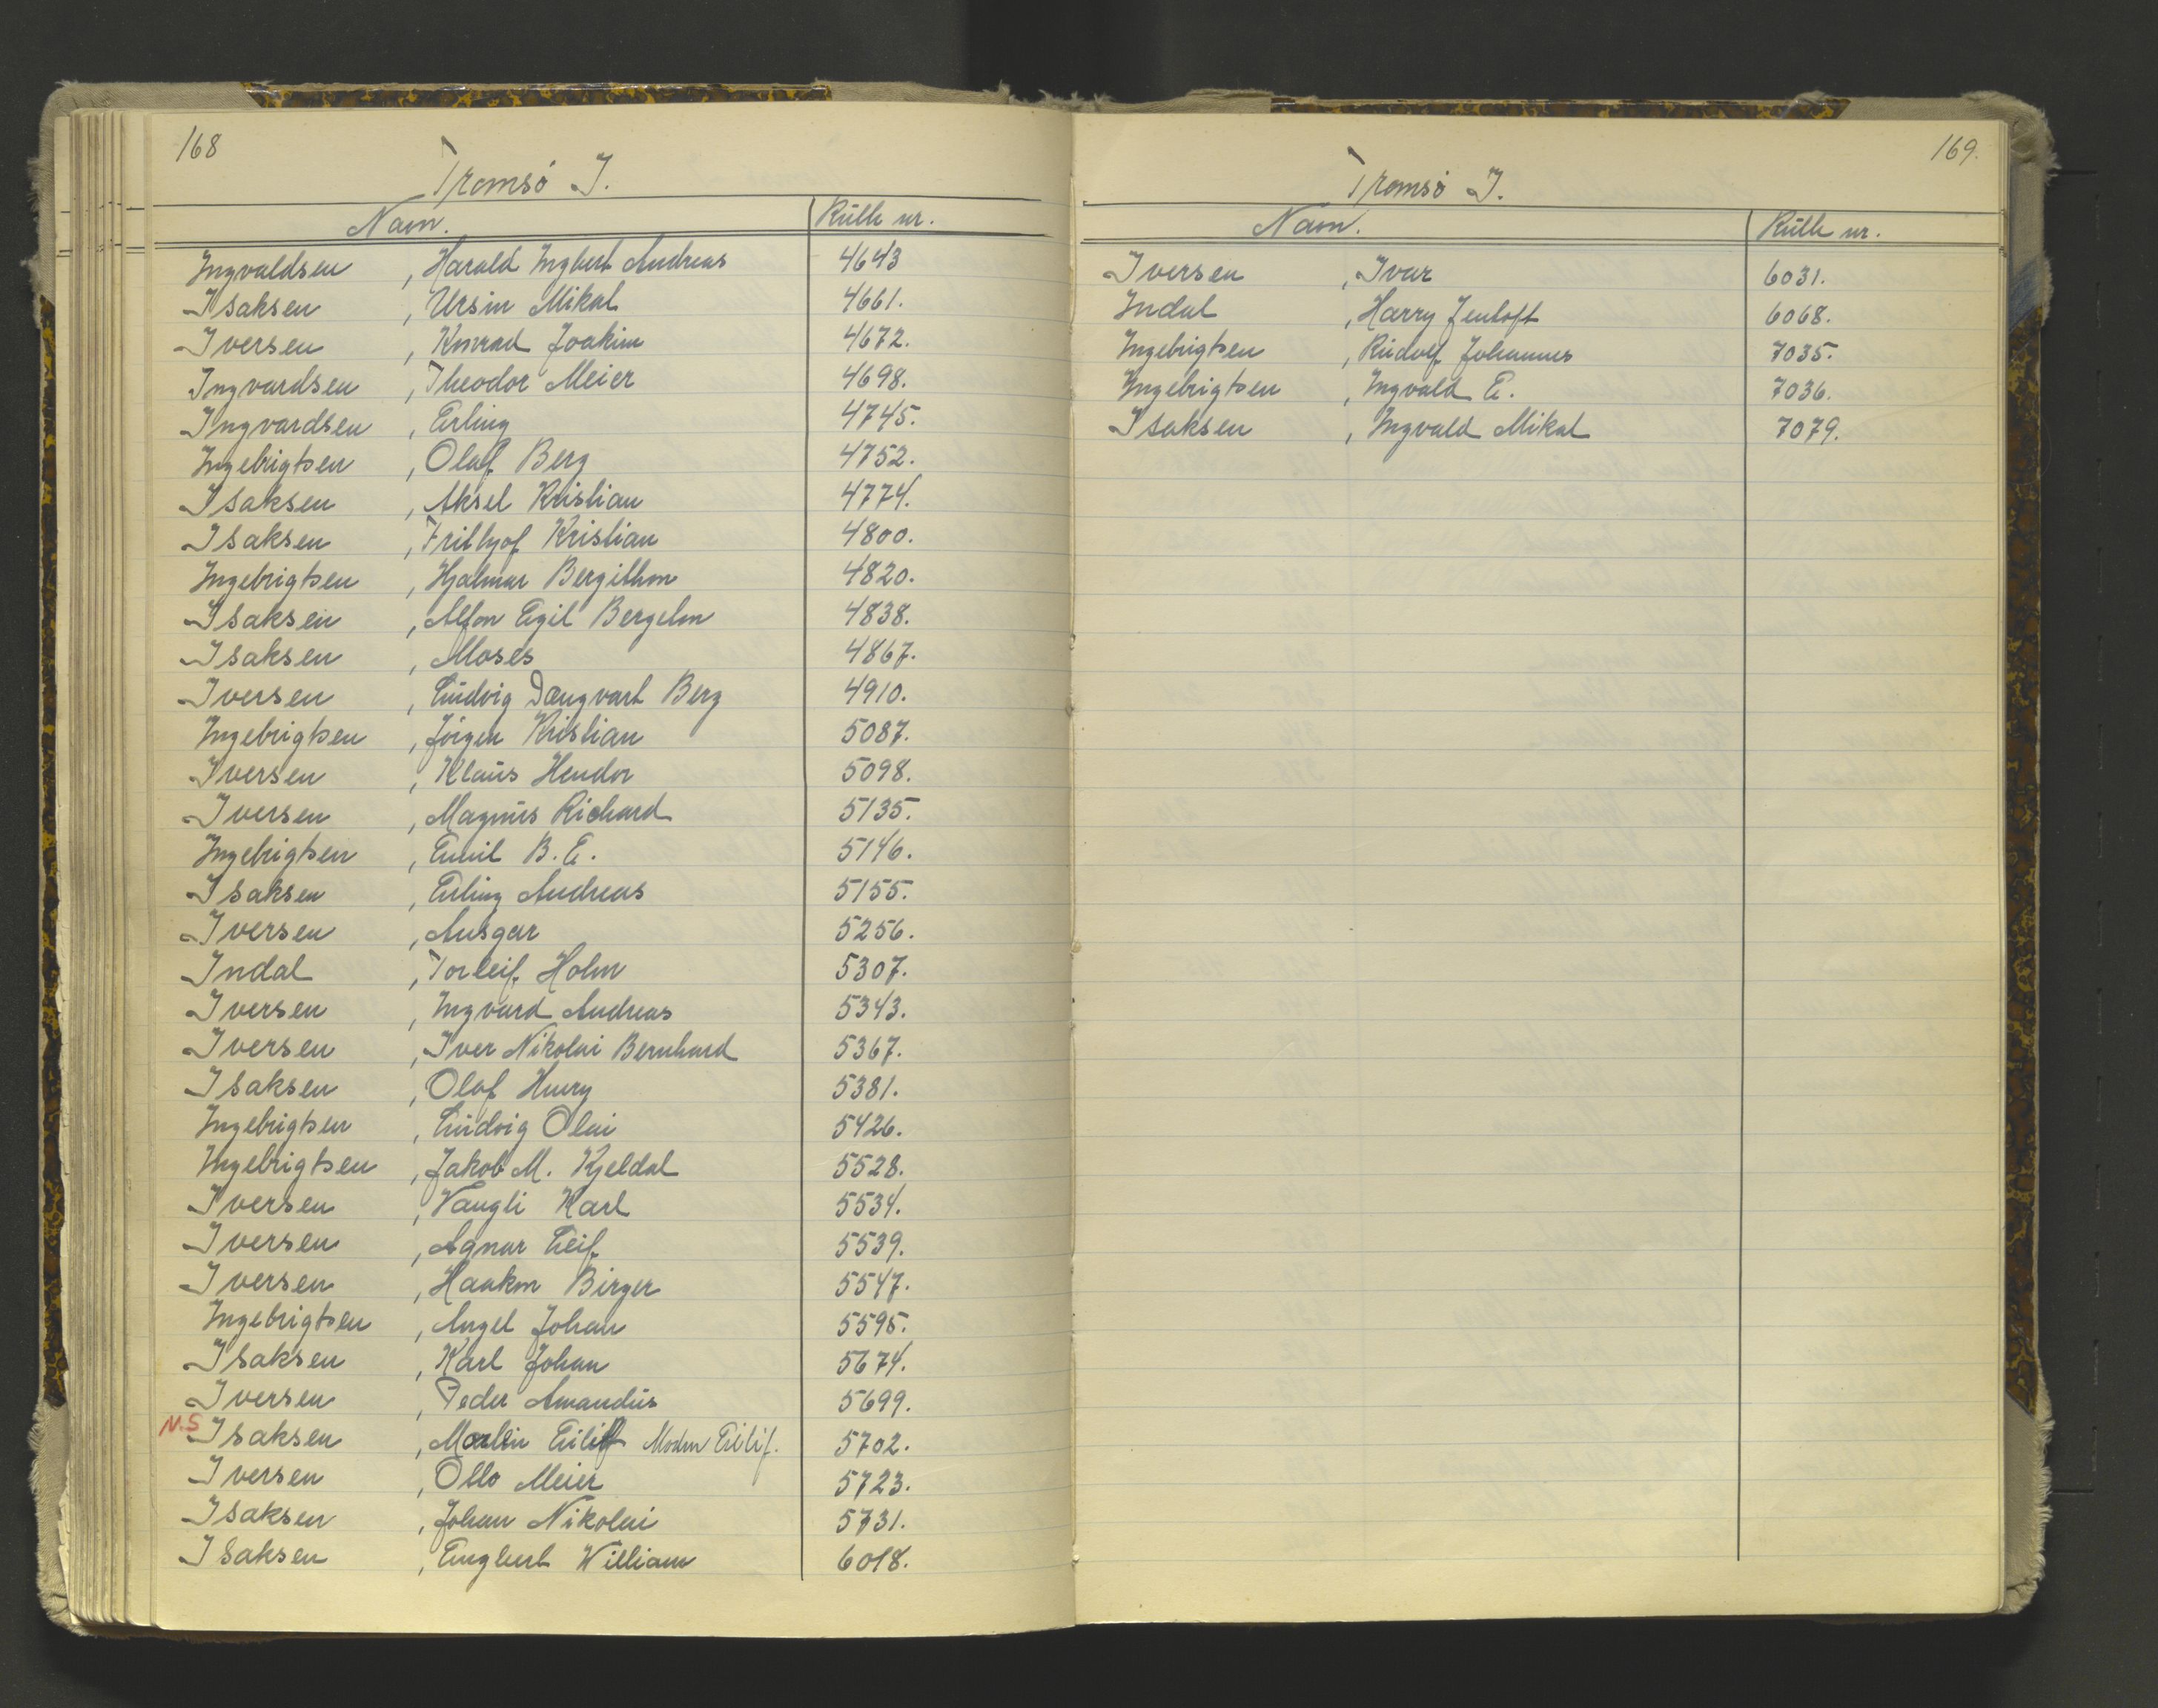 168
Tromsø I.
Navn. Rulle nr.
Ingvaldsen , Harald Ingbert Andreas 4643
Isaksen , Ursin Mikal 4661.
Iversen , Konrad Joakim 4672.
Ingvardsen , Theodor Meier 4698.
Ingvardsen , Erling 4745.
Ingebrigtsen , Olaf Berg 4752.
Isaksen , Aksel Kristian 4774.
Isaksen , Frithjof Kristian 4800.
Ingebrigtsen , Hjalmar Bergithon 4820.
Isaksen , Alfon Egil Bergelon 4838.
Isaksen , Moses 4867.
Iversen , Ludvig Dangvart Berg 4910.
Ingebrigtsen , Jørgen Kristian 5087.
Iversen , Klaus Hendor 5098.
Iversen , Magnus Richard 5135.
Ingebrigtsen , Emil B. E. 5146.
Isaksen , Erling Andreas 5155.
Iversen , Ansgar 5256.
Indal , Torleif Holm 5307.
Iversen , Ingvard Andreas 5343.
Iversen , Iver Nikolai Bernhard 5367.
Isaksen , Olaf Henry 5381.
Ingebrigtsen , Ludvig Olai 5426.
Ingebrigtsen , Jakob M. Kjeldal 5528.
Iversen , Vangli Karl 5534.
Iversen , Agnar Leif 5539.
Iversen , Haakon Birger 5547.
Ingebrigtsen , Angel Johan 5595.
Isaksen , Karl Johan 5674.
Iversen , Peder Amandus 5699.
N.S Isaksen , Eilif Eilif. 5702.
Iversen , Otto Meier 5723.
Isaksen , Johan Nikolai 5731.
Isaksen , Engbert William 6018.
169.
Tromsø I.
Navn. Rulle nr.
Iversen , Ivar 6031.
Indal , Harry Jentoft 6068.
Ingebrigtsen , Rudolf Johannes 7035.
Ingebrigtsen , Ingvald E. 7036.
Isaksen , Ingvald Mikal 7079.